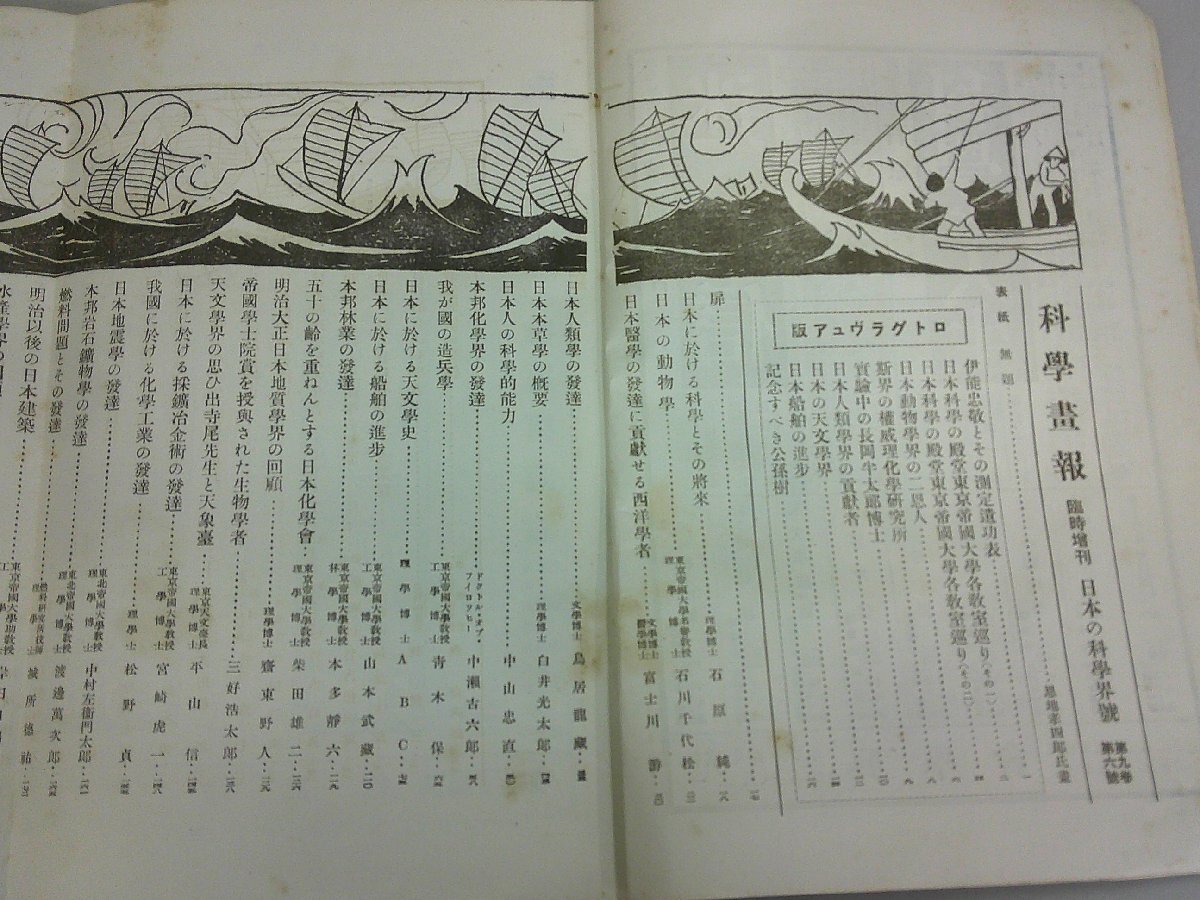 科學畫報 臨時增刊 日本の科學界號 第九卷第六號
表紙 無題 恩地孝四郎氏畫
ロトグラヴュア版
伊能忠敬とその測定遺功表
日本科學の殿堂東京帝國大學各教室巡り(その一)
日本科學の殿堂東京帝國大學各教室巡り(その二)
日本動物學界の二恩人
斯界の權威理化學研究所
實驗中の長岡半太郎博士
日本人類學界の貢獻者
日本の天文學界
日本船舶の進步
記念すべき公孫樹
扉
日本に於ける科學とその將來 理學博士 石原純
日本の動物學 東京帝國大學名譽教授 理學博士 石川千代松
日本醫學の發達に貢獻せる西洋學者 文學博士 醫學博士 富士川游
日本人類學の發達 文學博士 鳥居龍藏
日本本草學の概要 理學博士 白井光太郎
日本人の科學的能力 中山忠直
本邦化學界の發達 ドクトル・オブ・フイロソフヒー 中瀬古六郎
我が國の造兵學 東京帝國大學教授 工學博士 青木保
日本に於ける天文學史 理學博士 ABC
日本に於ける船舶の進步 東京帝國大學教授 工學博士 山本武藏
本邦林業の發達 東京帝國大學教授 林學博士 本多靜六
五十の齡を重ねんとする日本化學會 東京帝國大學教授 理學博士 柴田雄二
明治大正日本地質學界の回顧 理學博士 齋東野人
帝國學士院賞を授與された生物學者 三好浩太郎
天文學界の思ひ出寺尾先生と天象臺 東京天文臺長 理學博士 平山信
日本に於ける採鑛冶金術の發達 東京帝國大學教授 工學博士 宮崎虎一
我國に於ける化學工業の發達 理學士 松野貞
日本地震學の發達 東北帝國大學教授 理學博士 中村左衞門太郎
本邦岩石鑛物學の發達 東北帝國大學教授 理學博士 渡邊萬次郎
燃料問題とその發達 燃料研究所技師 理學士
明治以後の日本建築 東京帝國大學助教授 工學博士
水產學界の